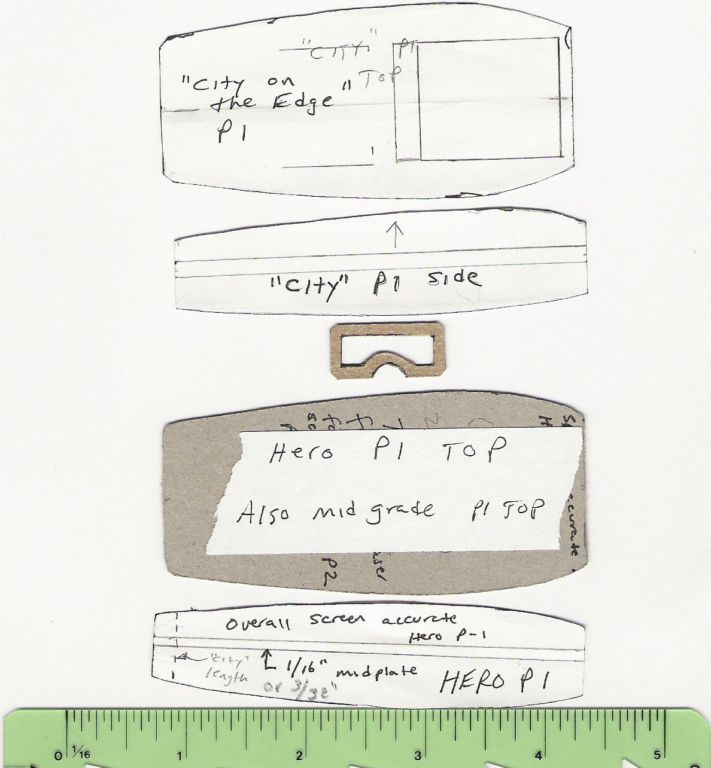 "CITY" P1
TOP
"City on
the Edge"
P1
"City" P1 side
Hero P1 TOP
Also mid grade P1 TOP
P2
Overall screen accurate
Hero P-1
"City"
length
1/16" midplate
or 3/32"
HERO P1
0 1/16 1 2 3 4 5